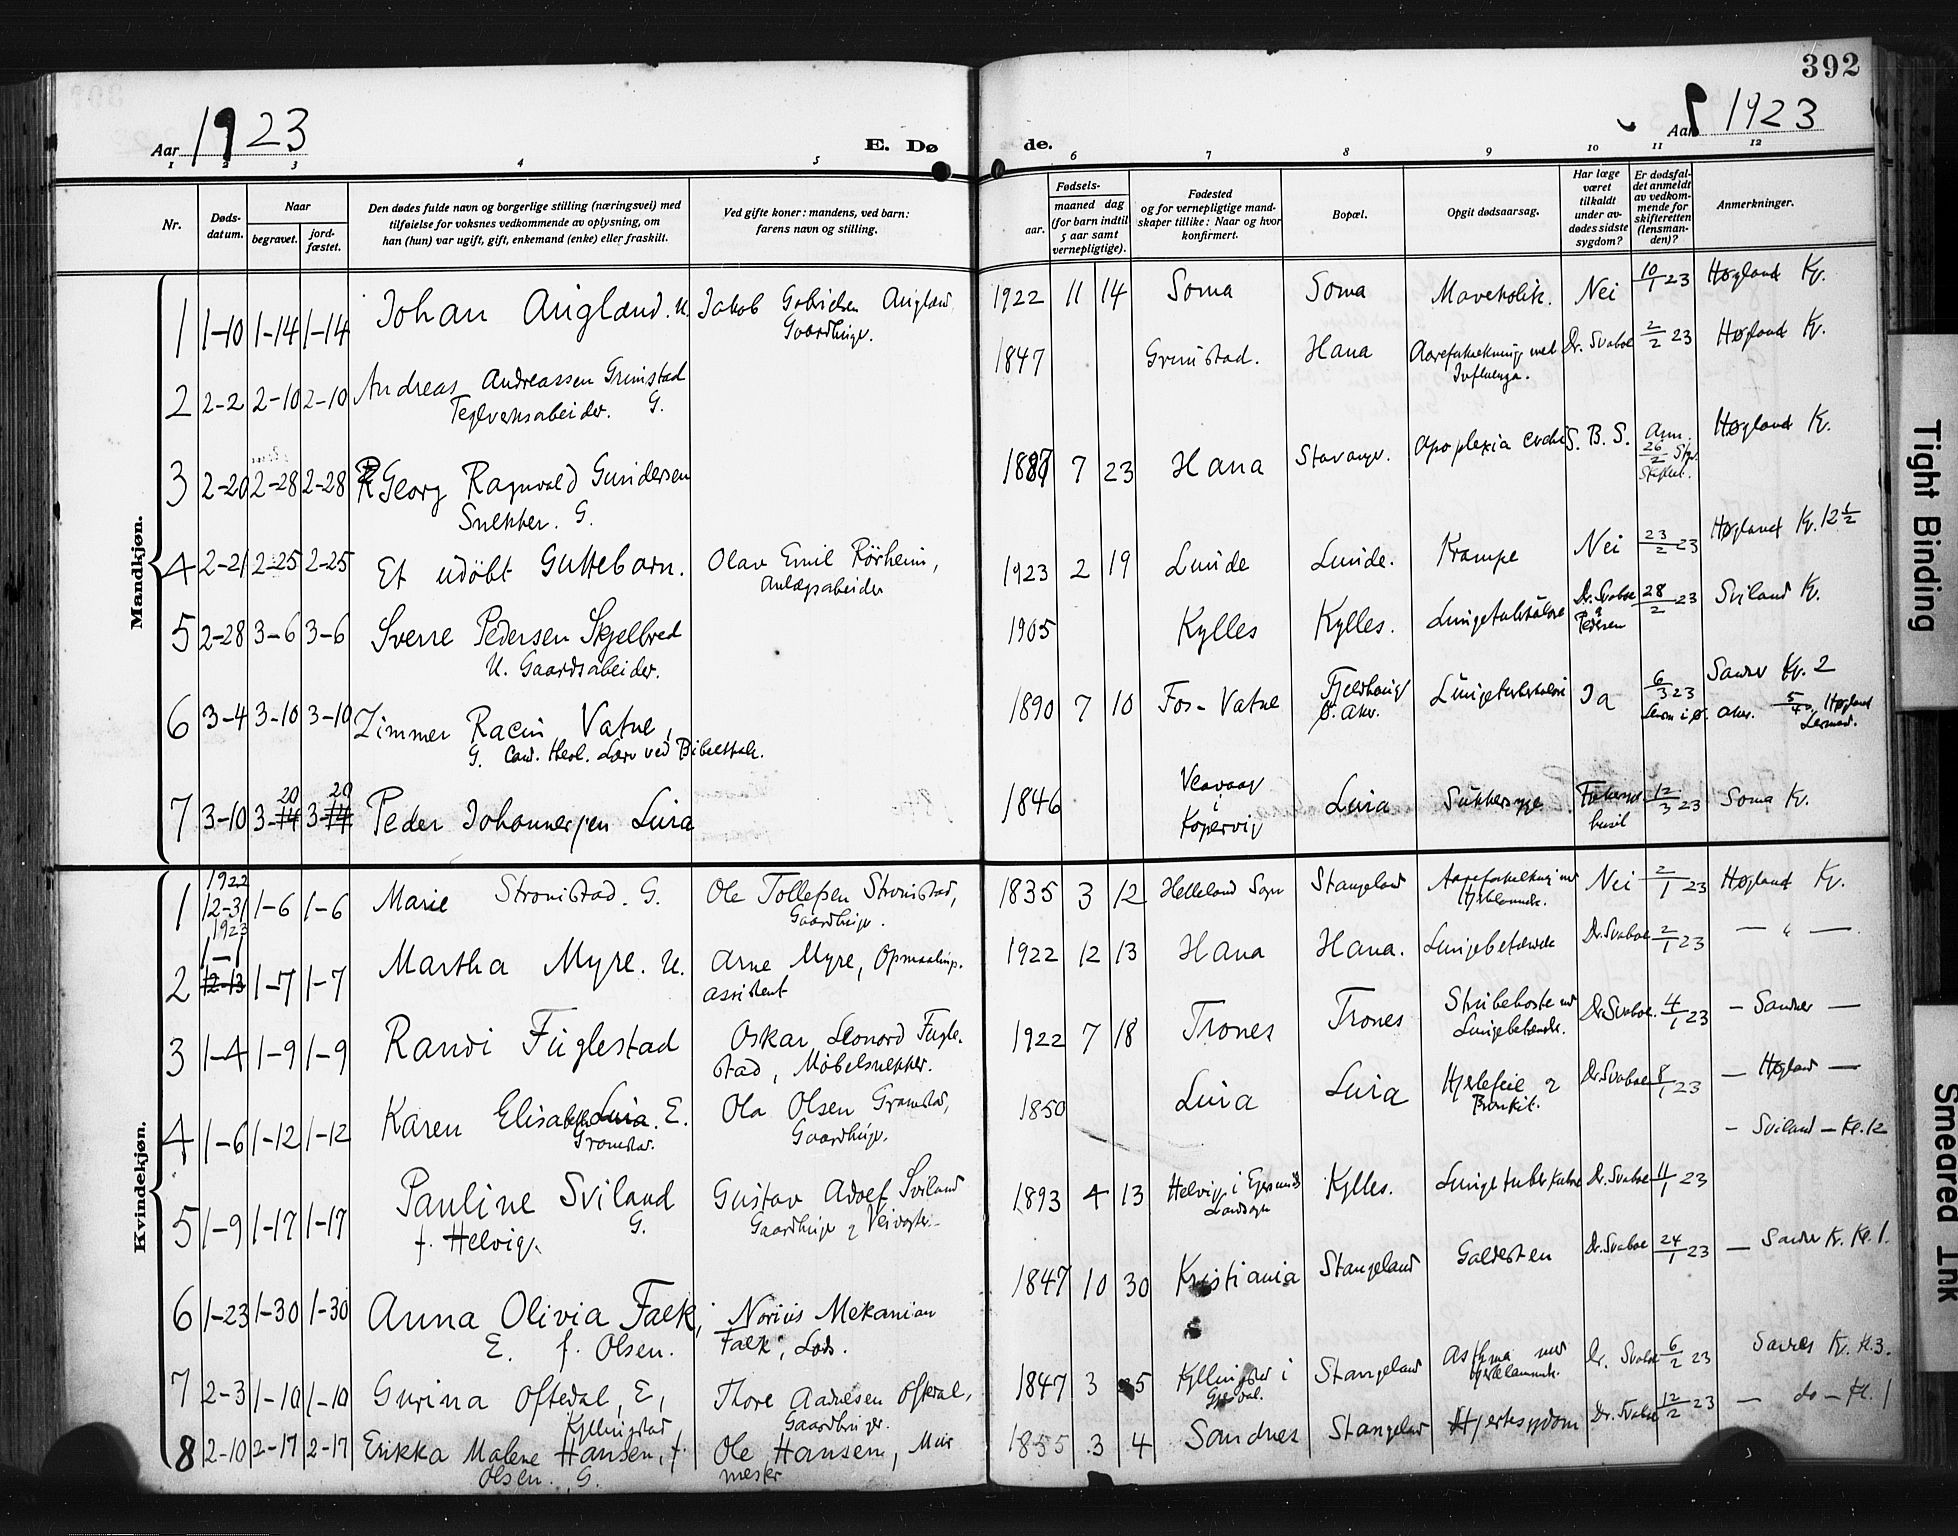 392
Aar 1923
E. Dø
de.
Aar 1923
1 2 3 4 5 6 7 8 9 10 11 12
Nr.
Døds-
datum.
Naar
begravet.
jord-
fæstet.
Den dødes fulde navn og borgerlige stilling (næringsvei) med
tilføielse for voksnes vedkommende av oplysning, om
han (hun) var ugift, gift, enkemand (enke) eller fraskilt.
Ved gifte koner: mandens, ved barn:
farens navn og stilling.
Fødsels-
aar.
maaned dag
(for barn indtil
5 aar samt
vernepligtige).
Fødested
og for vernepligtige mand-
skaper tillike: Naar og hvor
konfirmert.
Bopæl.
Opgit dødsaarsag.
Har læge
været
tilkaldt
under av-
dødes sidste
sygdom?
Er dødsfal-
det anmeldt
av vedkom-
mende for
skifteretten
(lensman-
den)?
Anmerkninger.
Mandkjøn.
1 1-10 1-14 1-14 Johan Augland. u. Jakob Augland, 1922 11 14 Soma Soma Mavekolik. Nei 10/1 23 Høgland Kg.
Gaardbruger.
2 2-2 2-10 2-10 Andreas Andreassen Grimstad 1847 Grimstad. Hana Aareforkalkning med Dr. Svaboe 2/2 23 Høgland Kg.
Teglverksarbeider. G.
Influenza.
3 2-20 2-28 2-28 Georg Ragnvald Gundersen 1887 7 23 Hana Stavanger. Apoplexia S. B. S. Anm. 26/2 Høgland Kg.
Snekker. G.
4 2-21 2-25 2-25 Et udöbt Guttebarn. Olav Emil Rörheim, 1923 2 19 Lunde Lunde. Krampe Nei 23/2 23 Høgland Kg. 12 1/2
Anlægsarbeider
5 2-28 3-6 3-6 Sverre Pedersen Skjelbred 1905 Kylles Kylles. Lungetuberkulose Dr. Svaboe 28/2 23 Sviland Kg.
U. Gaardsarbeider.
Pedersen
6 3-4 3-10 3-10 Zimmer Racin Vatne, 1890 7 10 Fos-Vatne Fjeldhaug Lungetuberkulose Ja 6/3 23 Sandnes Kg. 2
G. Cand. theol. Lærer ved Bibelskole.
Ø. Aker.
Lensm i Ø. Aker. 5/4 Høgland
Lensmand.
7 3-10 3-14 20 3-14 20 Peder Johannessen Lura 1846 Veavaag Lura Sukkersyge 12/3 23 Soma Kg.
Kopervig
Kvindekjøn.
1 1922 12-31 1-6 1-6 Marie Stromstad. G. Ole Tollefsen Stromstad, 1835 3 12 Helleland Sogn Stangeland Aareforkalkning med Nei 2/1 23 Høgland Kg.
Gaardbruger.
Hjertelammelse.
1923
2 1-1 12-13 1-7 1-7 Martha Myre. U. Arne Myre, Opmaalings- 1922 12 13 Hana Hana. Lungebetændelse Dr. Svaboe 2/1 23 — " —
assistent
3 1-4 1-9 1-9 Randi Fuglestad Oskar Leonard Fugle- 1922 7 18 Trones Trones Strubehoste med Dr. Svaboe. 4/1 23 — Sandnes —
stad, Møbelsnekker.
Lungebetændelse.
4 1-6 1-12 1-12 Karen Elisabeth Lura. E. Ola Olsen Gramstad, 1850 Lura Lura Hjertefeil & Dr. Svaboe 8/1 23 — Høgland —
Gramstad.
Gaardbruger.
Bronkit.
— Sviland — Kl. 12
5 1-9 1-17 1-17 Pauline Sviland Gustav Adolf Sviland 1893 4 13 Helvig i Egersunds Kylles. Lungetuberkulose Dr. Svaboe 11/1 23
f. Helvig. G.
Gaardbruger & Veivogter.
Landsogn
6 1-23 1-30 1-30 Anna Olivia Falk, Norius Mekanian 1847 10 30 Kristiania Stangeland Galdesten Dr. Svaboe 24/1 23 — Sandnes Kg. Kl. 1.
E. f. Olsen.
Falk, Lods.
7 2-3 1-10 1-10 Gurina Oftedal, E, Thore Aadnesen Oftedal, 1847 3 5 Kyllingstad i Stangeland Asthma med Dr. Svaboe 6/2 23 Sandnes Kg. Kl. 3.
Kyllingstad
Gaardbruger.
Gjesdal.
Hjertelammelse.
8 2-10 2-17 2-17 Erikka Malene Hansen, f. Ole Hansen, Mur 1855 3 4 Sandnes Stangeland Hjertesygdom Dr. Svaboe 12/2 23 — do — Kl. 1
Olsen. G.
mester
Tight Binding
Smeared Ink